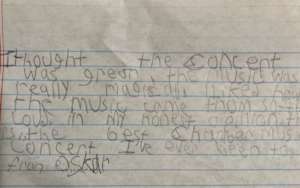 I thought the Concert
was green, the music was
really magical, I liked how
the music came from
loud in my honest opinion th
is the best Chamber Mus
concert I've ever been to
from Oskar